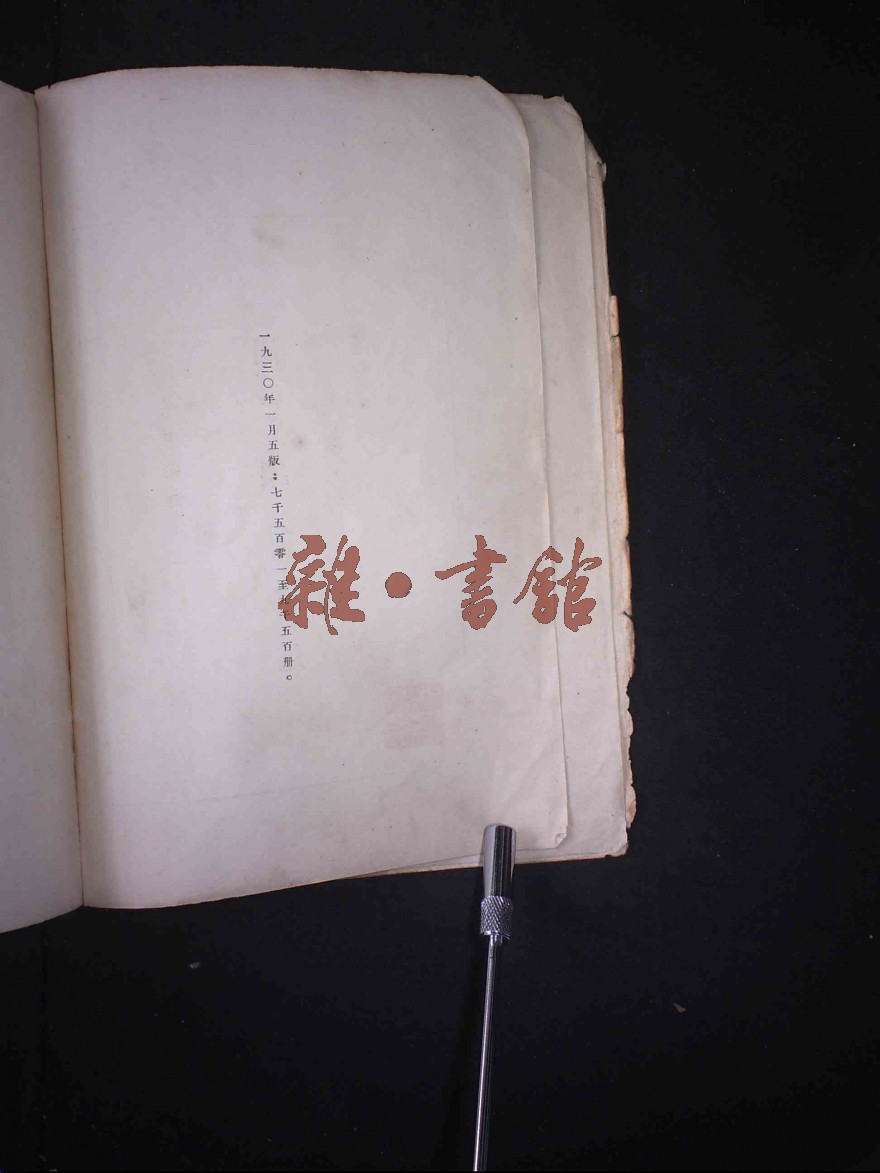 一九三〇年一月五版：七千五百零一至九千五百册。
雜·書館